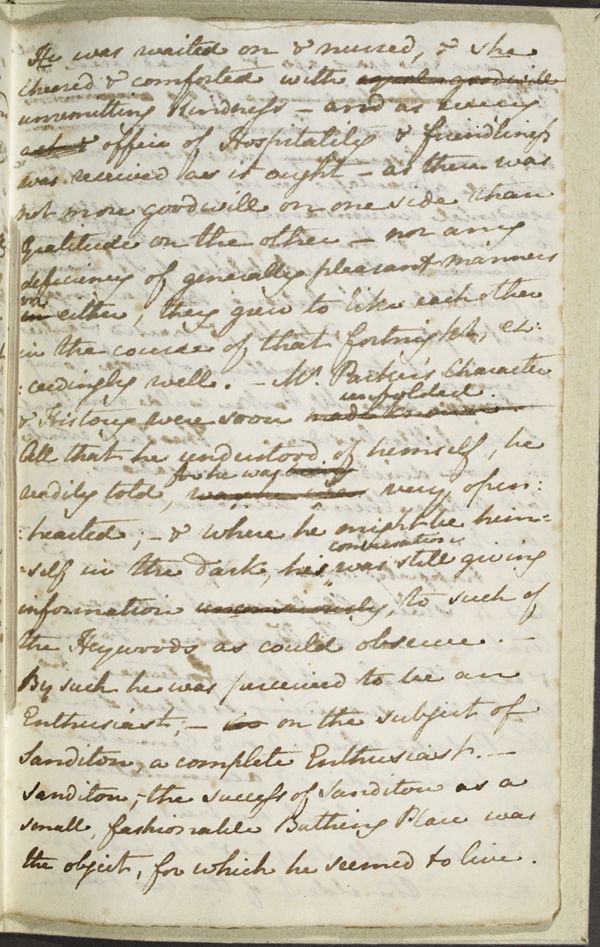 He was waited on & nursed, & she
cheered & comforted with equal goodwill
unremitting kindness – and as every
act & office of Hospitality & friendliness
was received as it ought – as there was
not more goodwill on one side than
Gratitude on the other – nor any
deficiency of generally pleasant manners
in either, they grew to like each other
in the course of that fortnight, ex:
:ceedingly well. – Mr. Parker's Character
unfolded.
& History were soon made known
All that he understood of himself, he
for he was being
readily told, very open:
:hearted; – & where he might be him=
conversation
=self in the dark, his was still giving
information unconsciously, to such of
the Heywoods as could observe. –
By such he was perceived to be an
Enthusiast; – on the subject of
Sanditon, a complete Enthusiast. –
Sanditon, – the success of Sanditon as a
small, fashionable Bathing Place was
the object, for which he seemed to live.